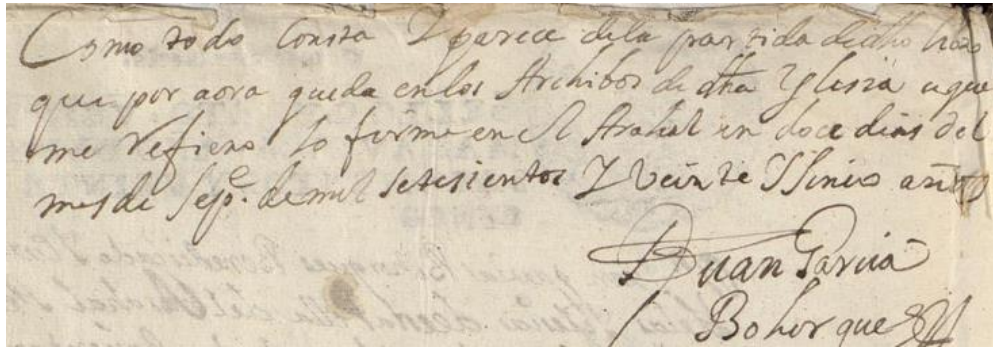 Como todo Consta Y parece dela partida de dho libro
que por aora queda en los Archibos de dha Yglesia a que
me Refiero Lo firme en el Arahal en doce dias del
mes de Sepe. de mil setesientos Y Veinte Y Sinco años
Juan Garcia
Bohorques